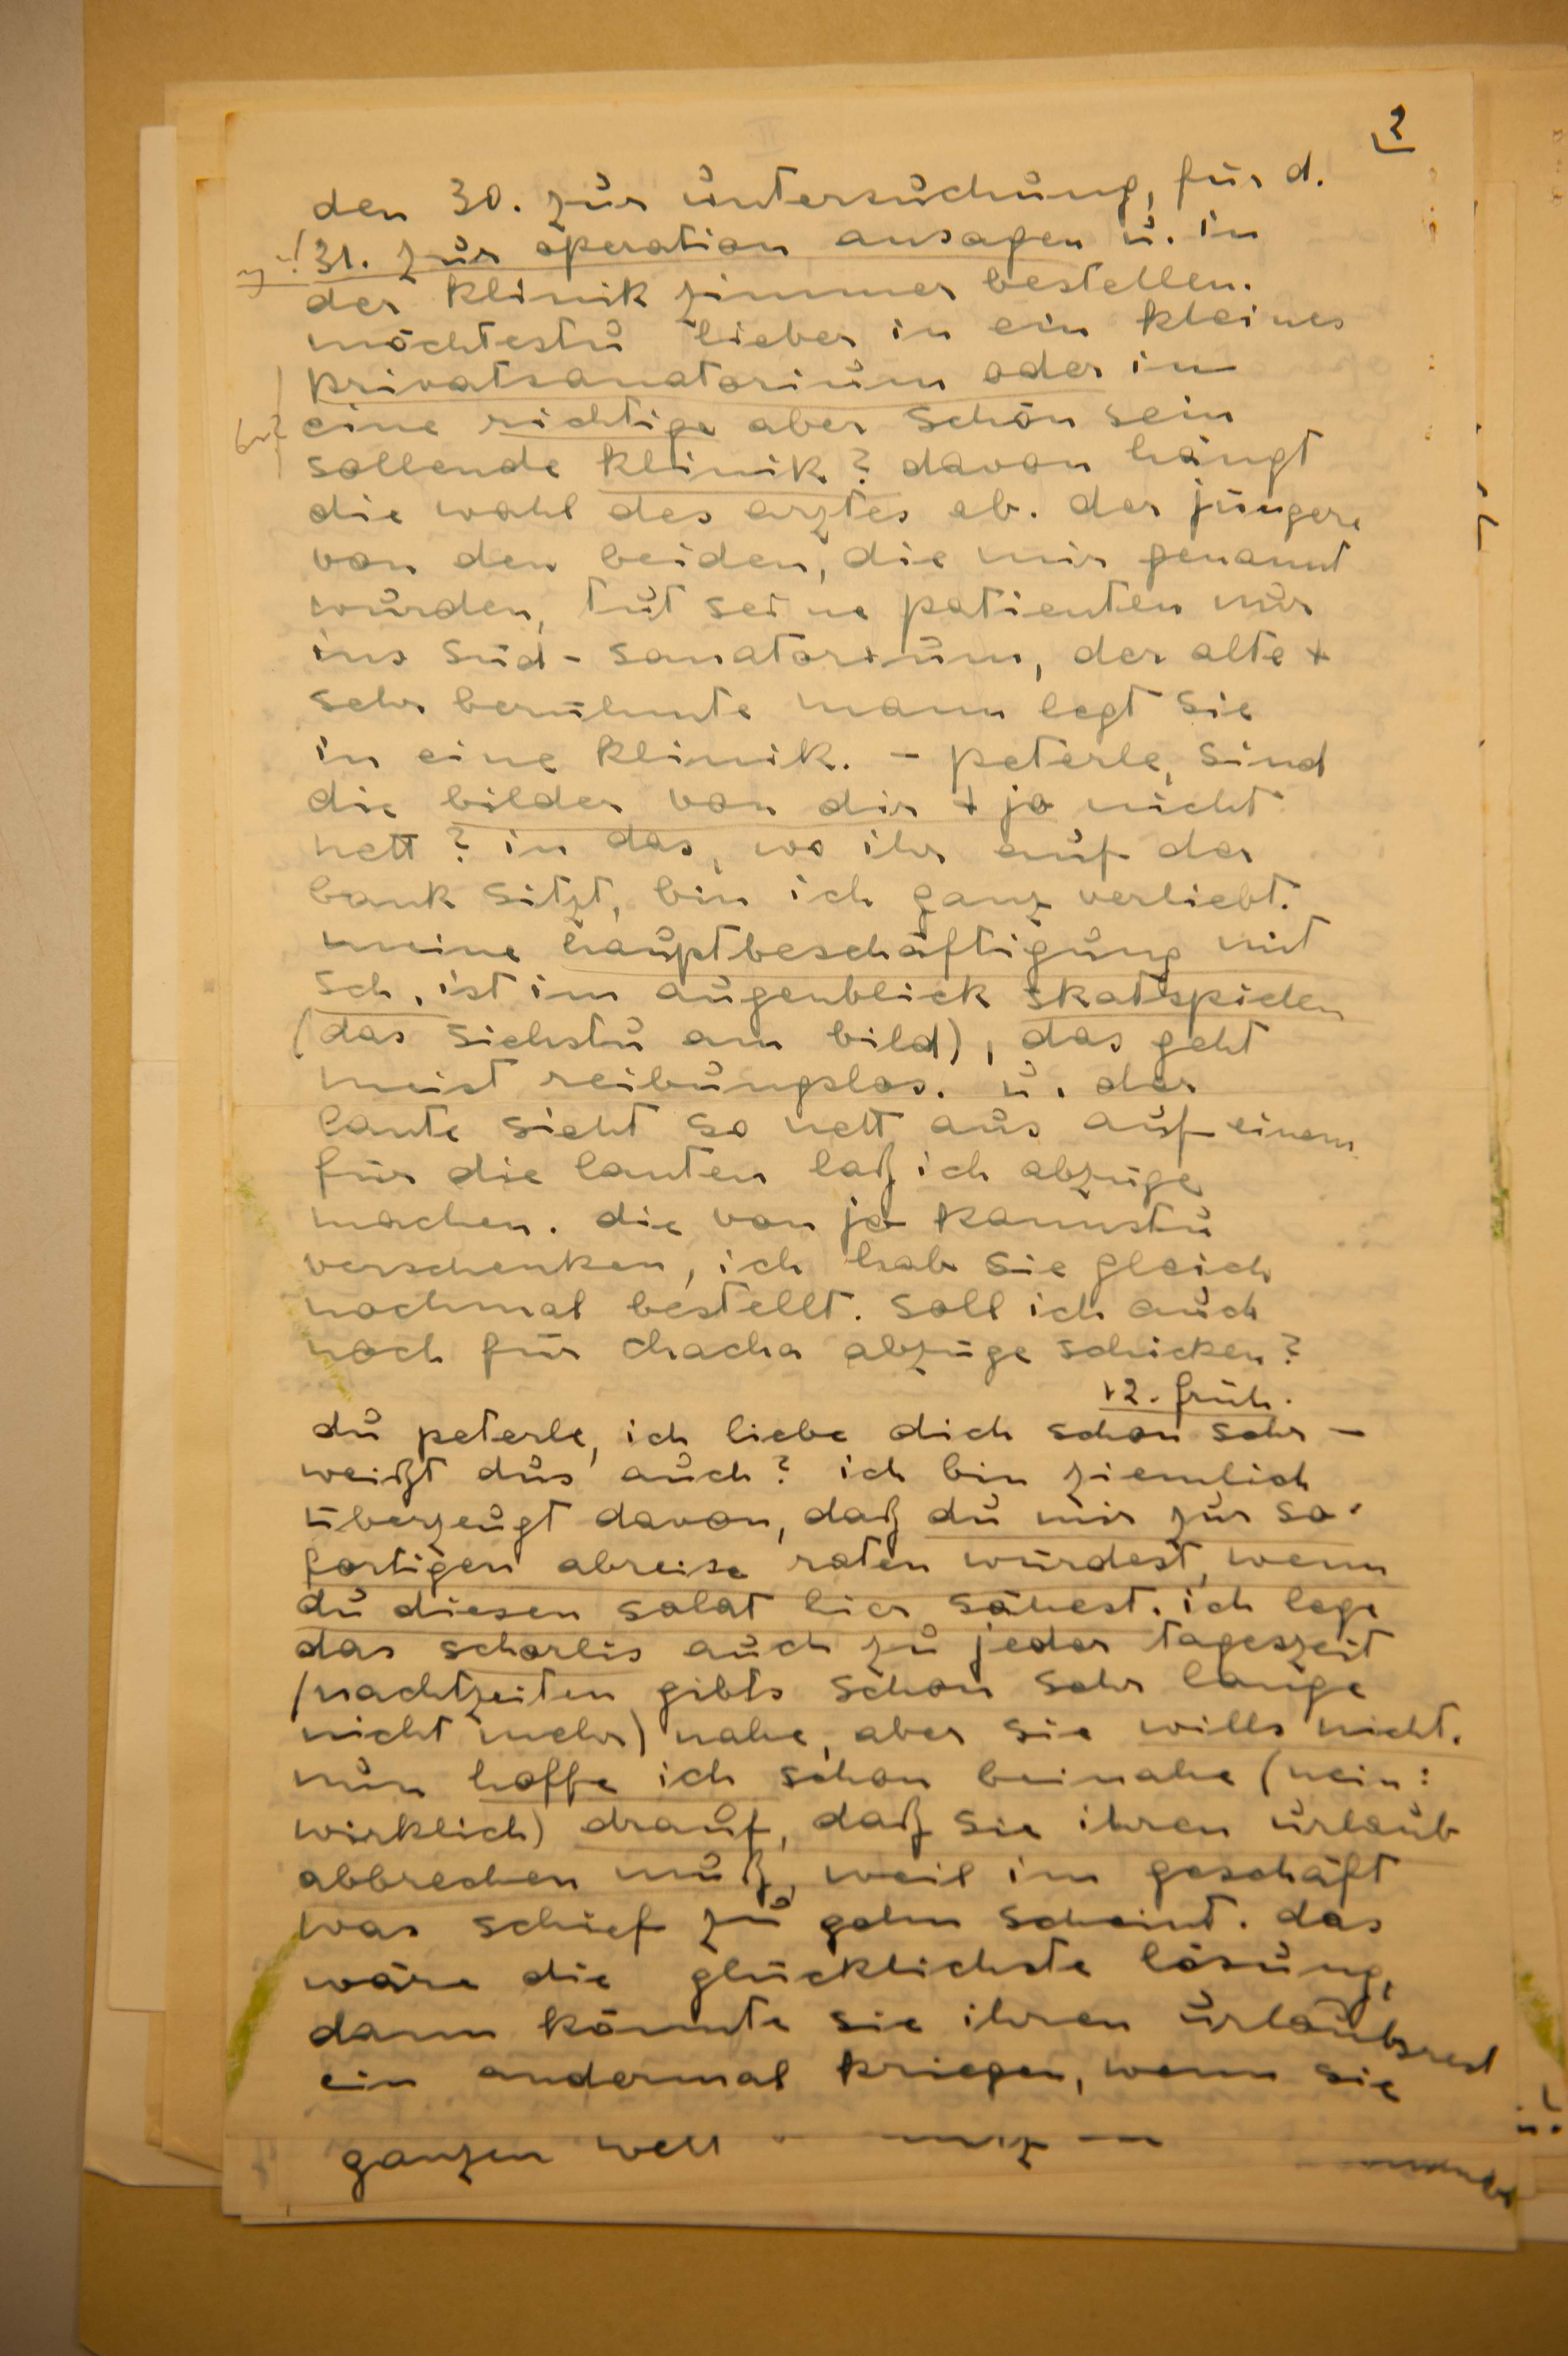 2
den 30. zur untersuchung, für d.
31. zur operation ansagen u. in
der klinik zimmer bestellen.
möchtestu lieber in ein kleines
privatsanatorium oder in
eine richtige aber schön sein
sollende klinik? davon hängt
die wahl des arztes ab. der jüngere
von den beiden, die mir genannt
wurden, tut seine patienten nur
ins süd-sanatorium, der alte +
sehr berühmte mann legt sie
in eine klinik. - peterle, sind
die bilder von dir + jo nicht
nett? in das, wo ihr auf der
bank sitzt, bin ich ganz verliebt.
meine hauptbeschäftigung mit
sch. ist im augenblick skatspielen
(das siehstu am bild), das geht
meist reibungslos. u. der
lante sieht so nett aus auf einem
für die lanten laß ich abzüge
machen. die von jo kannstu
verschenken, ich hab sie gleich
nochmal bestellt. soll ich auch
noch für chacha abzüge schicken?
12. früh.
du peterle, ich liebe dich schon sehr -
weißt dus auch? ich bin ziemlich
überzeugt davon, daß du mir zur so-
fortigen abreise raten würdest, wenn
du diesen salat hier sähest. ich lege
das schorlis auch zu jeder tageszeit
(nachtzeiten gibts schon sehr lange
nicht mehr) nahe, aber sie wills nicht.
nun hoffe ich schon beinahe (nein:
wirklich) drauf, daß sie ihren urlaub
abbrechen muß, weil im geschäft
was schief zu gehn scheint. das
wäre die glücklichste lösung,
dann könnte sie ihren urlaubsrest
ein andermal kriegen, wenn sie
ganzen welt